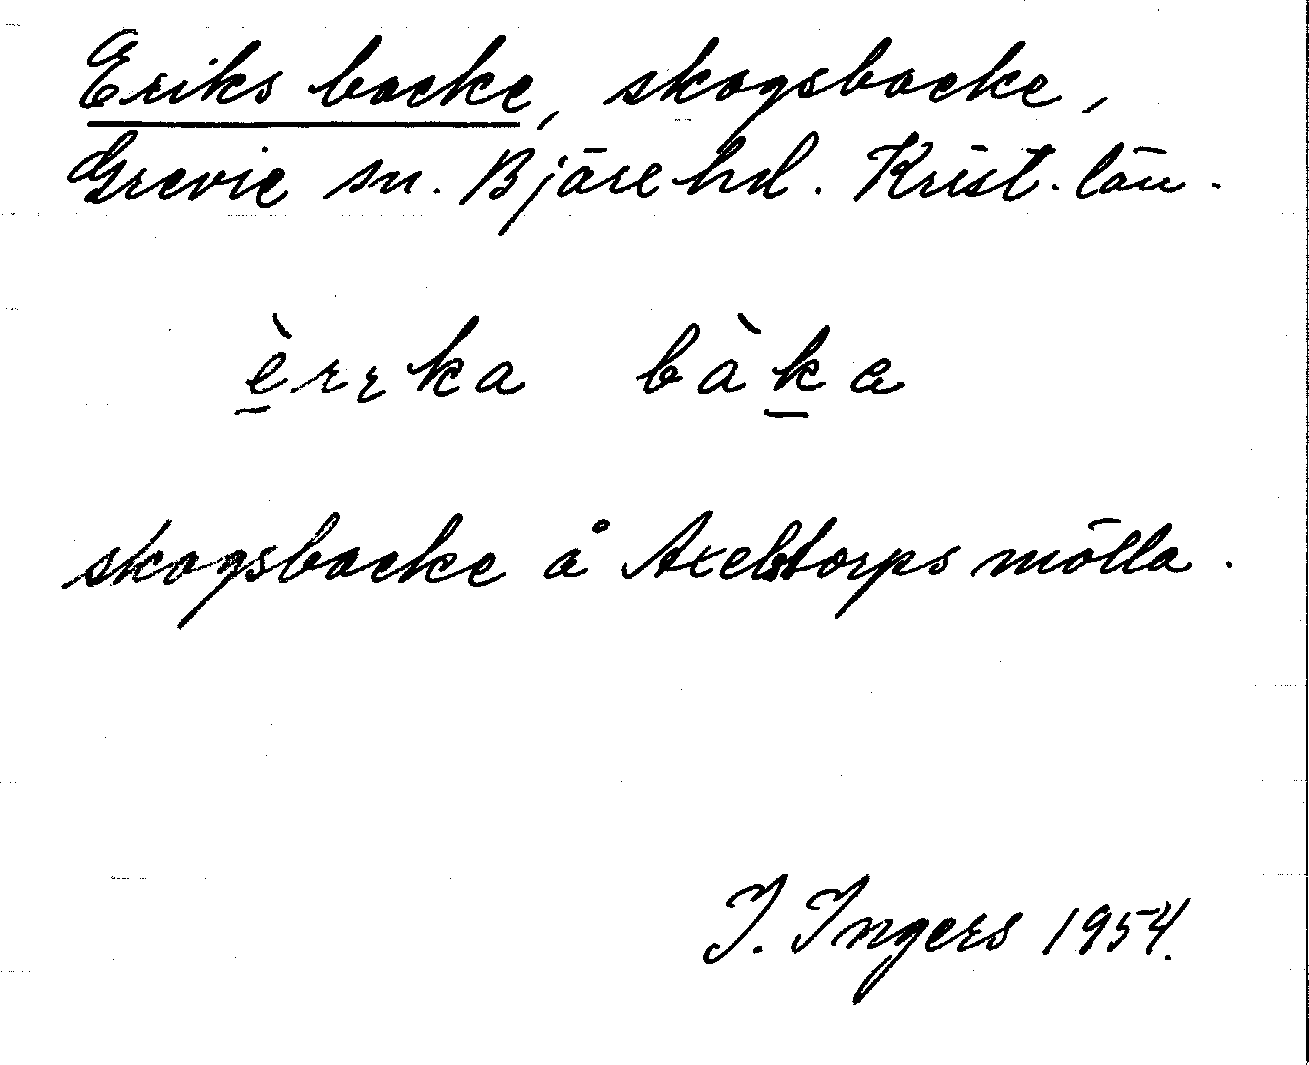 Eriks backe, skogsbacke,
Grevie sn. Bjäre hd. Krist. län.
skogsbacke å Axelstorps mölla.
I. Ingers 1954.